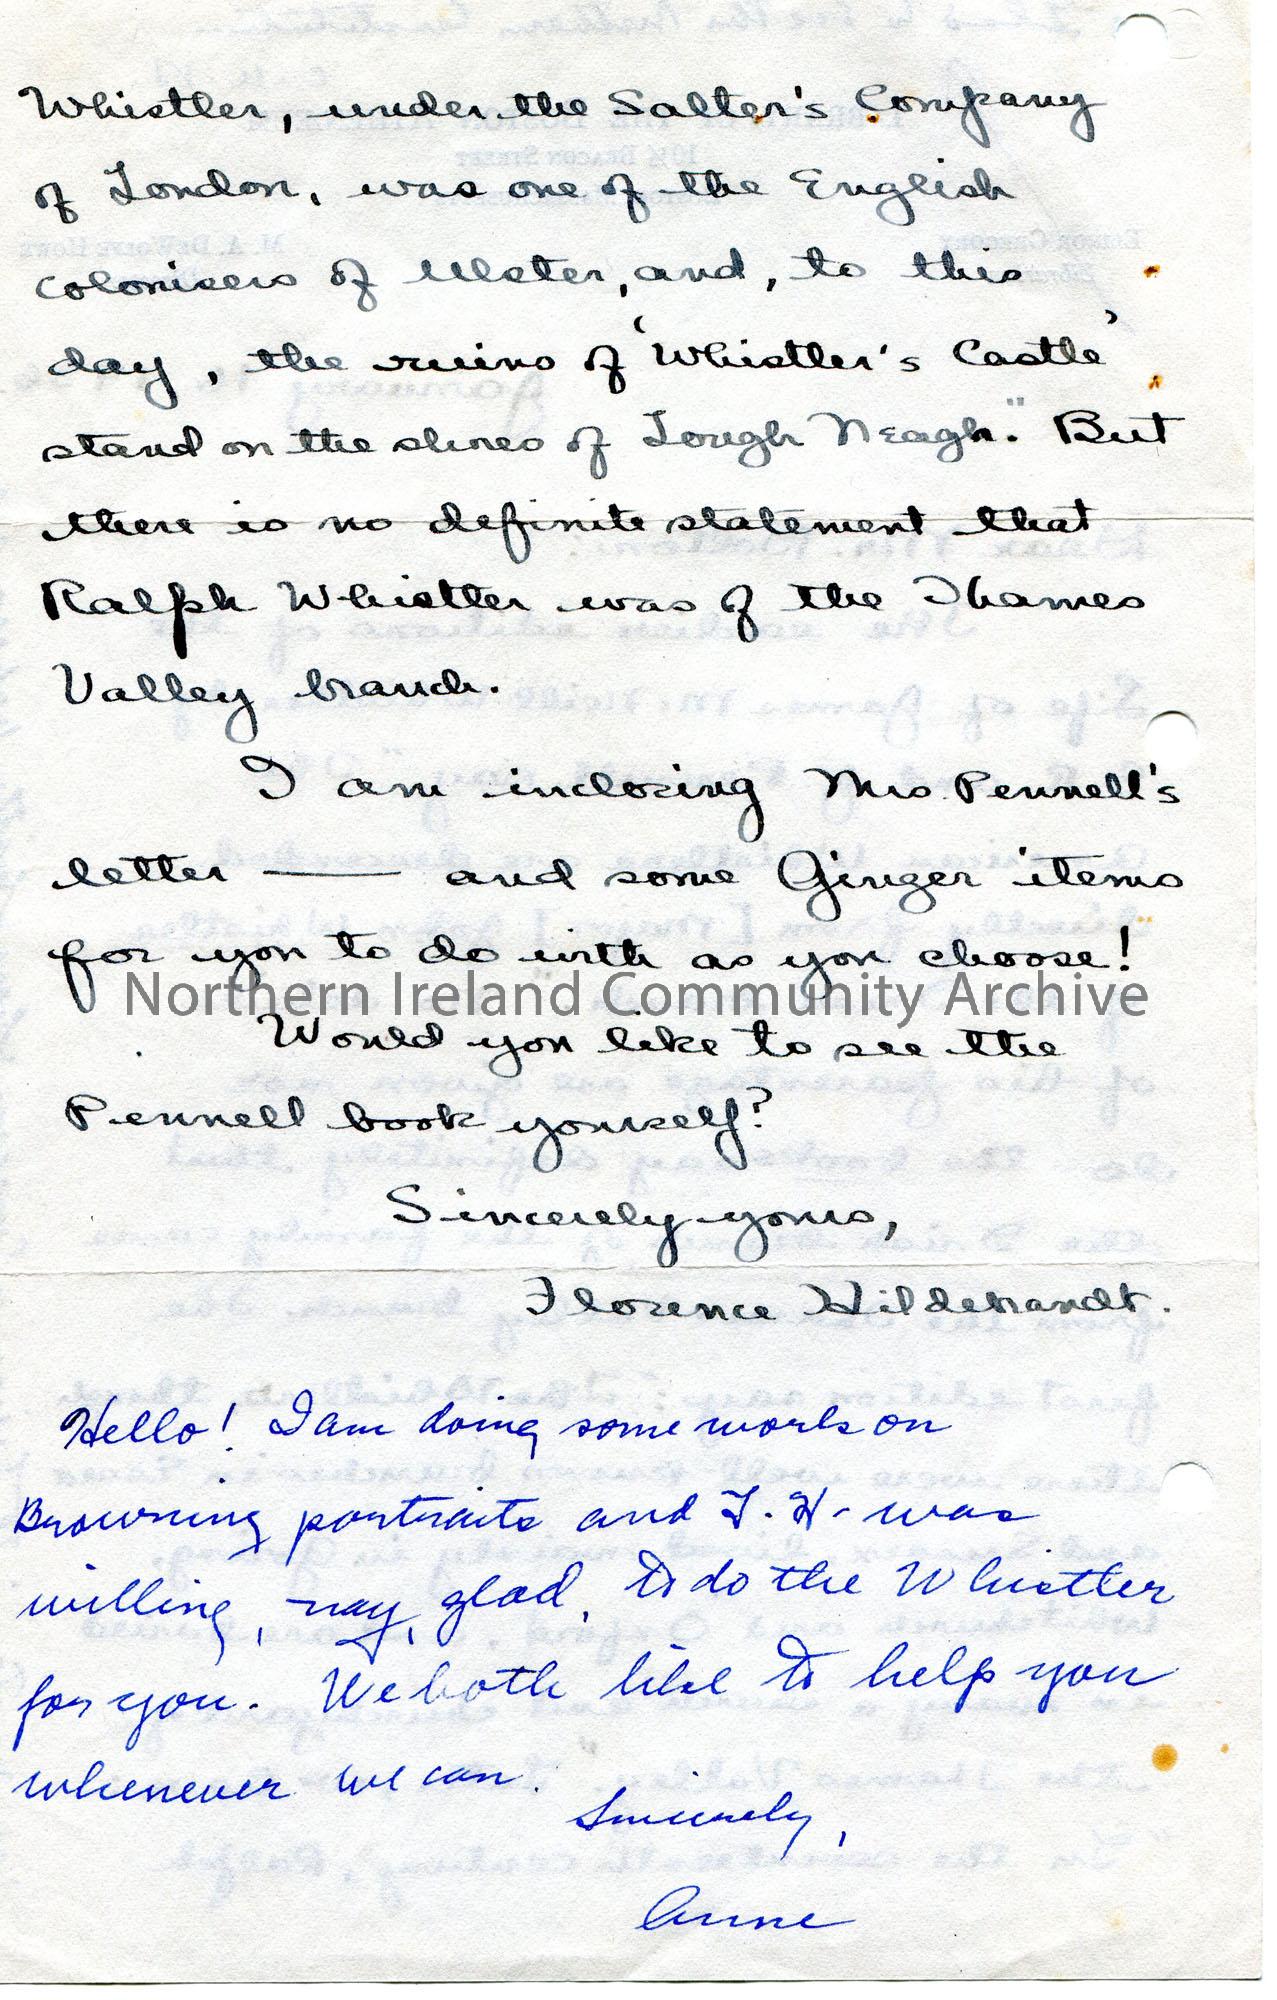 Whistler, under the Salter's Company
of London, was one of the English
colonisers of Ulster, and, to this
day, the ruins of 'Whistler's Castle'
stand on the shores of Lough Neagh." But
there is no definite statement that
Ralph Whistler was of the Thames
Valley branch.
I am inclosing Mrs Pennell's
letter — and some Ginger items
for you to do with as you choose!
Northern Ireland Community Archive
Would you like to see the
Pennell book yourself?
Sincerely yours,
Florence Hildebrandt.
Hello! I am doing some work on
Browning portraits and F. H. was
willing, nay, glad, to do the Whistler
for you. We both like to help you
whenever we can.
Sincerely,
Anne